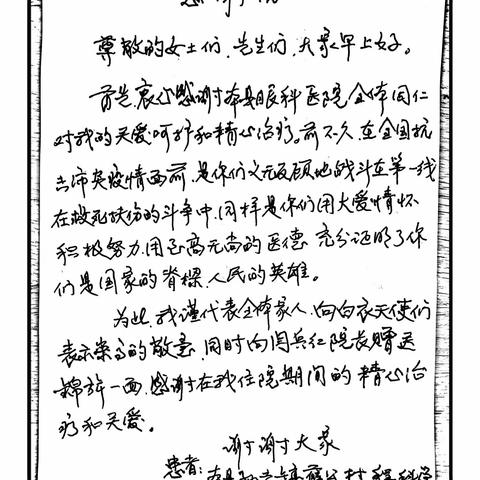 感谢信
尊敬的女士们、先生们，大家早上好。
首先衷心感谢本县眼科医院全体同仁
对我的关爱呵护和精心治疗。前不久，在全国抗
击肺炎疫情面前，是你们义无反顾地战斗在第一线
在救死扶伤的斗争中，同样是你们用大爱情怀
积极努力，用至高无尚的医德，充分证明了你
们是国家的脊樑，人民的英雄。
为此，我谨代表全体家人，向白衣天使们
表示崇高的敬意，同时向闫兵红院长赠送
锦旗一面，感谢在我住院期间的精心治
疗和关爱。
谢谢大家
患者：本县